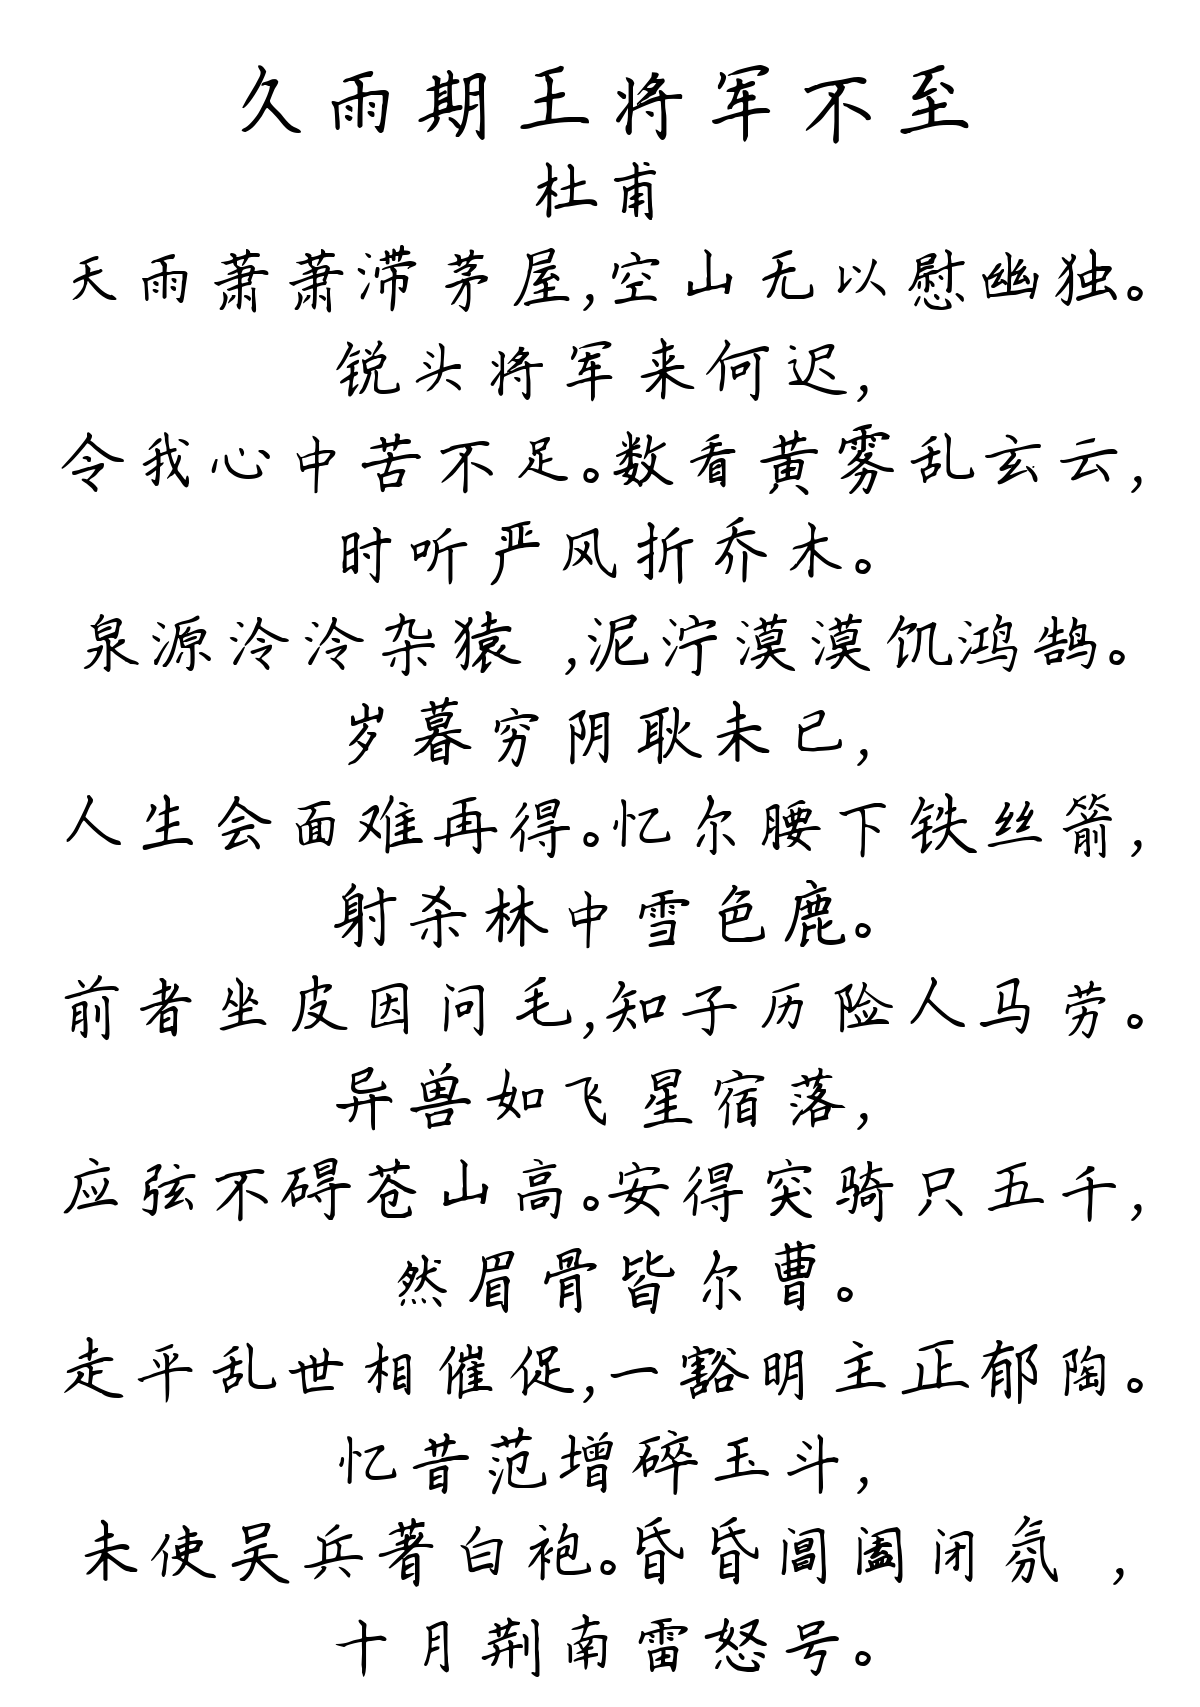 久雨期王将军不至
杜甫
天雨萧萧滞茅屋,空山无以慰幽独。
锐头将军来何迟,
令我心中苦不足。数看黄雾乱玄云,
时听严风折乔木。
泉源泠泠杂猿 ,泥泞漠漠饥鸿鹄。
岁暮穷阴耿未已,
人生会面难再得。忆尔腰下铁丝箭,
射杀林中雪色鹿。
前者坐皮因问毛,知子历险人马劳。
异兽如飞星宿落,
应弦不碍苍山高。安得突骑只五千,
然眉骨皆尔曹。
走平乱世相催促,一豁明主正郁陶。
忆昔范增碎玉斗,
未使吴兵著白袍。昏昏阊阖闭氛 ,
十月荆南雷怒号。